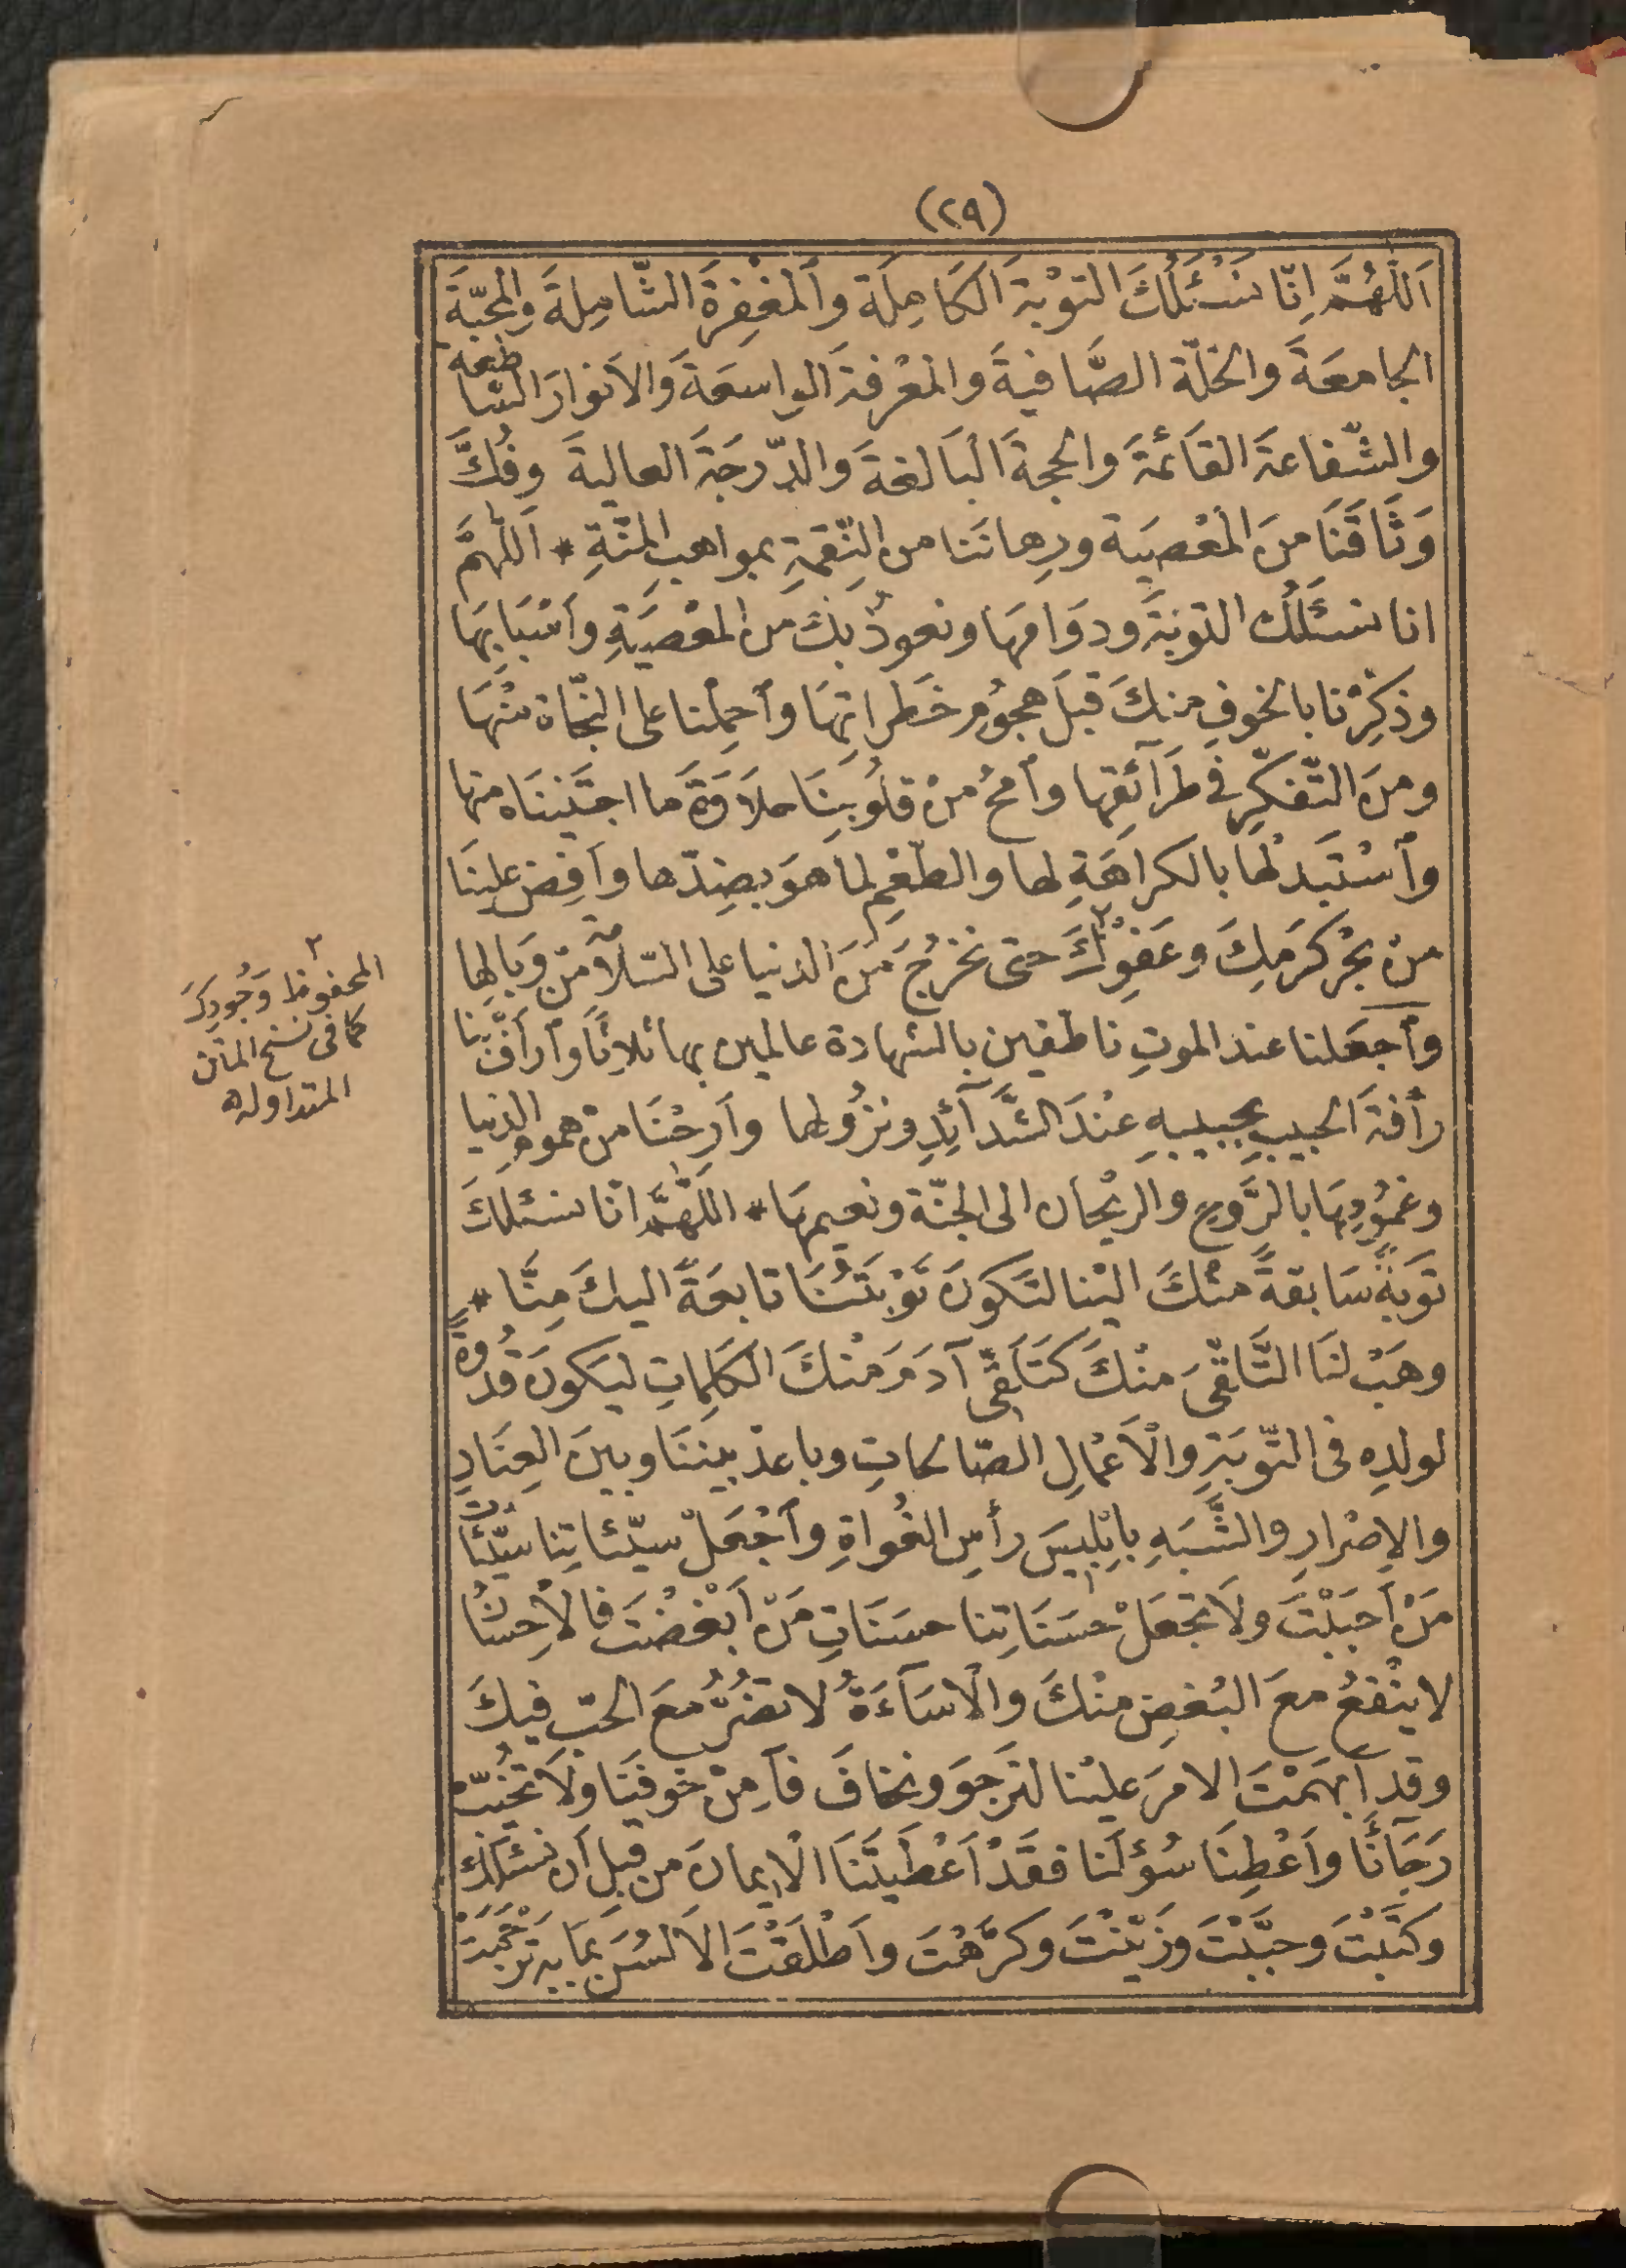 (٢٩)
اَللّٰهُمَّ اِنّا نَسْـَٔلُكَ التوْبةَ الكَامِلَة وٱلمغْفِرَةَ الشّامِلةَ والمحبّةَ
الجامعَةَ والخلّةَ الصَّافيةَ والمعْرفةَ الواسعَةَ والاَنوارَ السّاطعة
والشّفاعةَ القَائمَةَ والحجةَ البَالغةَ والدّرجَةَ العاليةَ وفُكَّ
وَثَاقَنَا منَ المَعْصيَة ورِهانَنا من النِّقمةِ بمواهبِ المنّةِ * اَللّٰهُمَّ
انا نسـَٔلُك التوبَةَ ودوَامَها ونعوذُ بكَ من المعْصيَةِ وأسْبَابِهَا
وذكِّرْنا بالخوفِ منكَ قبلَ هجُومِ خَطراتِهَا وٱحمِلْنا على النجّاة منْهَا
ومنَ التّفكّرِ فِي طَرَآئقِها وٱمحُ منْ قلُوبِنَا حلاَوَةَ ما اجتَنَيْناه منها
وٱسْتبَدلْهَا بالكراهَةِ لها والطَّعْمِ لماَ هوَ بضِدّها وأفِض علينَا
منْ بحْرِ كرَمِكَ وعَفوِكَ ٢ حتى نخرُجَ منَ الدنيا على السّلامة منْ وَبَالِها
وٱجعَلنا عندَ الموتِ ناطقين بالشهادة عالمين بها ثلاثًا وٱرأفْ بنا
رأفةَ الحبيبِ بحبيبهِ عنْدَ الشَّدآئِدِ ونزُولها وأرِحْنَا منْ همومِ الدنيا
وغمُومِهَا بالرَّوحِ والريْحان الى الجنّة ونعيمهَا * اللّٰهُمَّ انّا نسـئلكَ
توَبةً سَابقةً منْكَ اليْنا لتَكونَ تَوْبَتُنَا تابعَةً اليكَ مِنَّا *
وهَبْ لنَا التَّلقّىَ منْكَ كَتَلَقّى آدَمَ منْكَ الكَلِماتِ ليَكونَ قُدْوَةً
لولدِهِ فى التّوبَةِ والْاَعْمالِ الصّالحاتِ وباعدْ بينَنَا وبينَ العِنَادِ
والاِصْرارِ والشَّبَهِ بابْلِيسَ رأسِ الغُواةِ وٱجْعَلْ سيّئاتِنا سَيّئات
مَنْ اَحبَبْتَ ولَا تجْعَلْ حسَنَاتِنا حسَنَاتِ مَنْ أبْغضْتَ فالْاِحسَانُ
لا ينْفعُ معَ البُغضِ منْكَ والْاسَآءَةُ لا تضُرُّ مَعَ الحبِّ فيكَ
وقد اَبهَمْتَ الامرَ عليْنا لنرجوَ ونخافَ فآمِنْ خوفَنَا ولاَ تُخيّبْ
رَجَآئَنَا وأَعْطِنَا سُؤلَنا فقَدْ اَعْطَيتَنَا الْايمانَ من قبلِ أن نسئلكَ
وكتَبْتَ وحبَّبْتَ وزَيّنْتَ وكرَّهْتَ واَطْلَقْتَ الاَلسُنَ بما بهِ تَرْجَمَتْ
٢
المحفوظ وَجُودِكَ
كما فى نسخ المتن
المتداوله